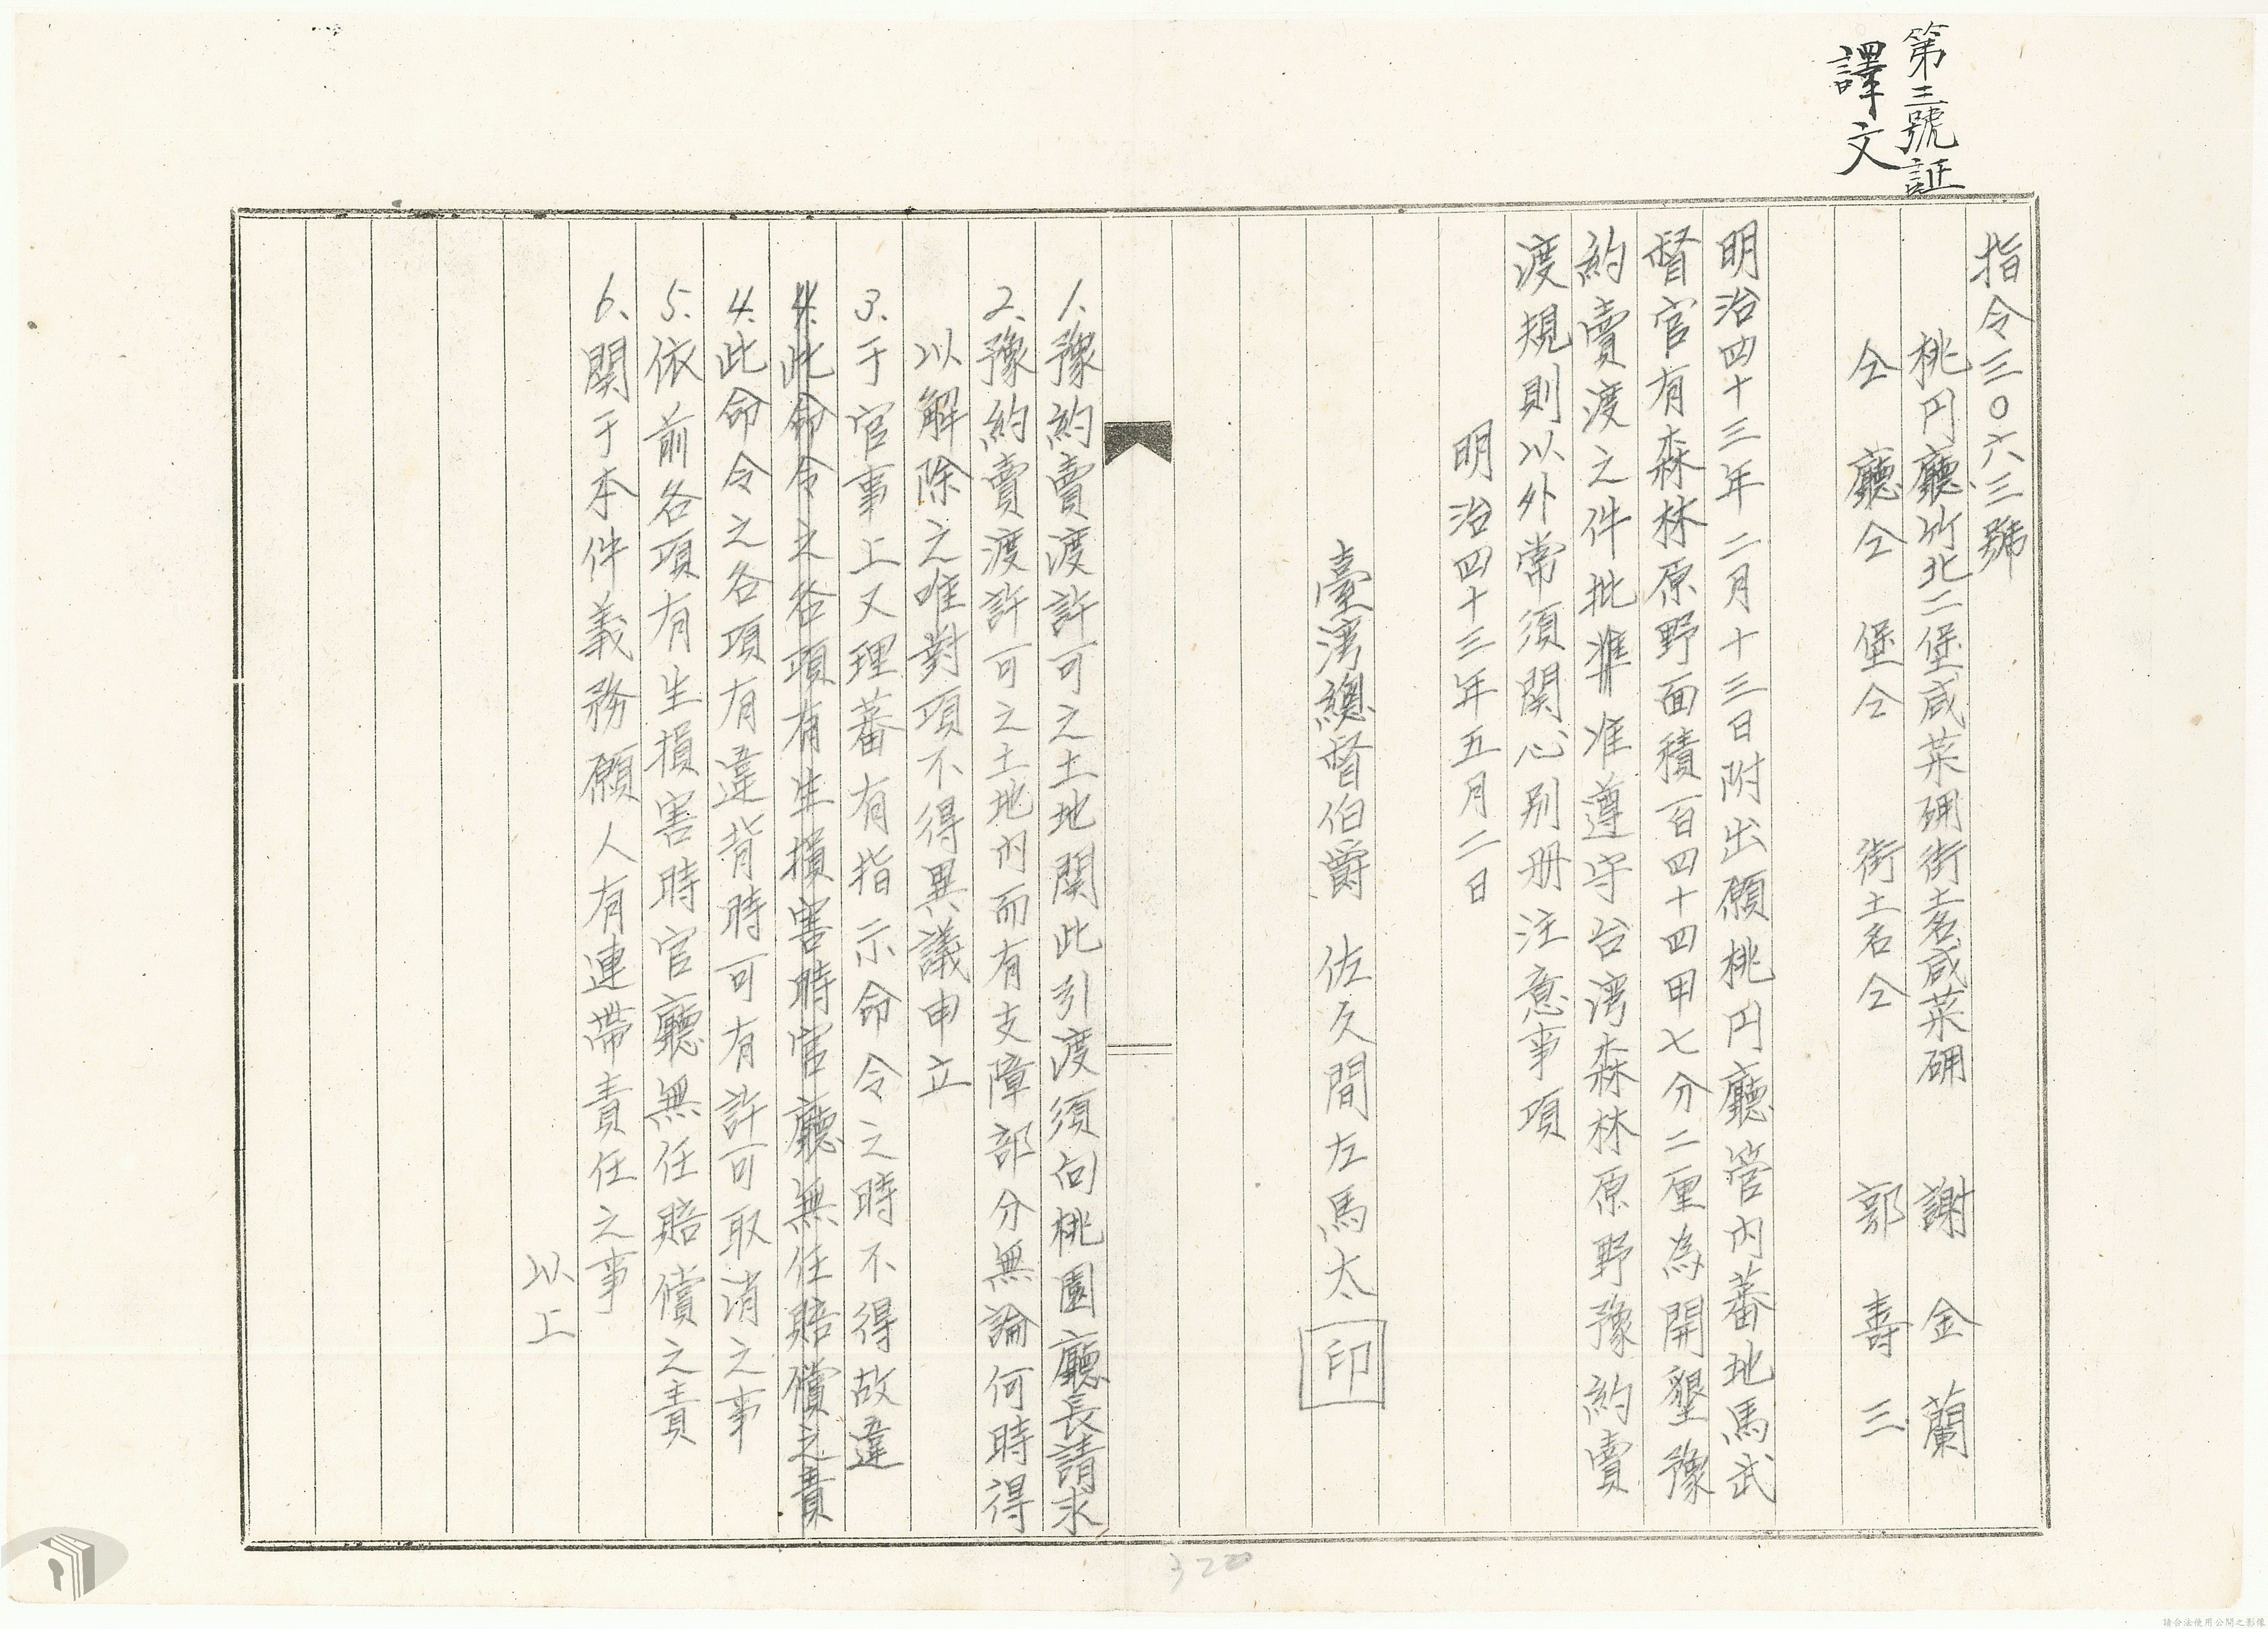 第三號証
譯文
指令三〇六三號
桃円廳竹北二堡咸菜硼街土名咸菜硼 謝金蘭
仝廳仝堡仝街土名仝 郭壽三
明治四十三年二月十三日附出願桃円廳管内蕃地馬武
督官有森林原野面積一百四十四甲七分二厘為開墾豫
約賣渡之件批準准遵守台湾森林原野豫約賣
渡規則以外常須関心別册注意事項
明治四十三年五月二日
臺湾總督伯爵 佐久間左馬太 印
1、豫約賣渡許可之土地関此引渡須向桃園廳長請求
2、豫約賣渡許可之土地内而有支障部分無論何時得
以解除之唯對項不得異議申立
3、于官事上又理蕃有指示命令之時不得故違
4、此命令之各項有生損害時官廳無任賠償之責
4、此命令之各項有違背時可有許可取消之事
5、依前各項有生損害時官廳無任賠償之責
6、関于本件義務願人有連帶責任之事
以上
320
請合法使用公開之影像